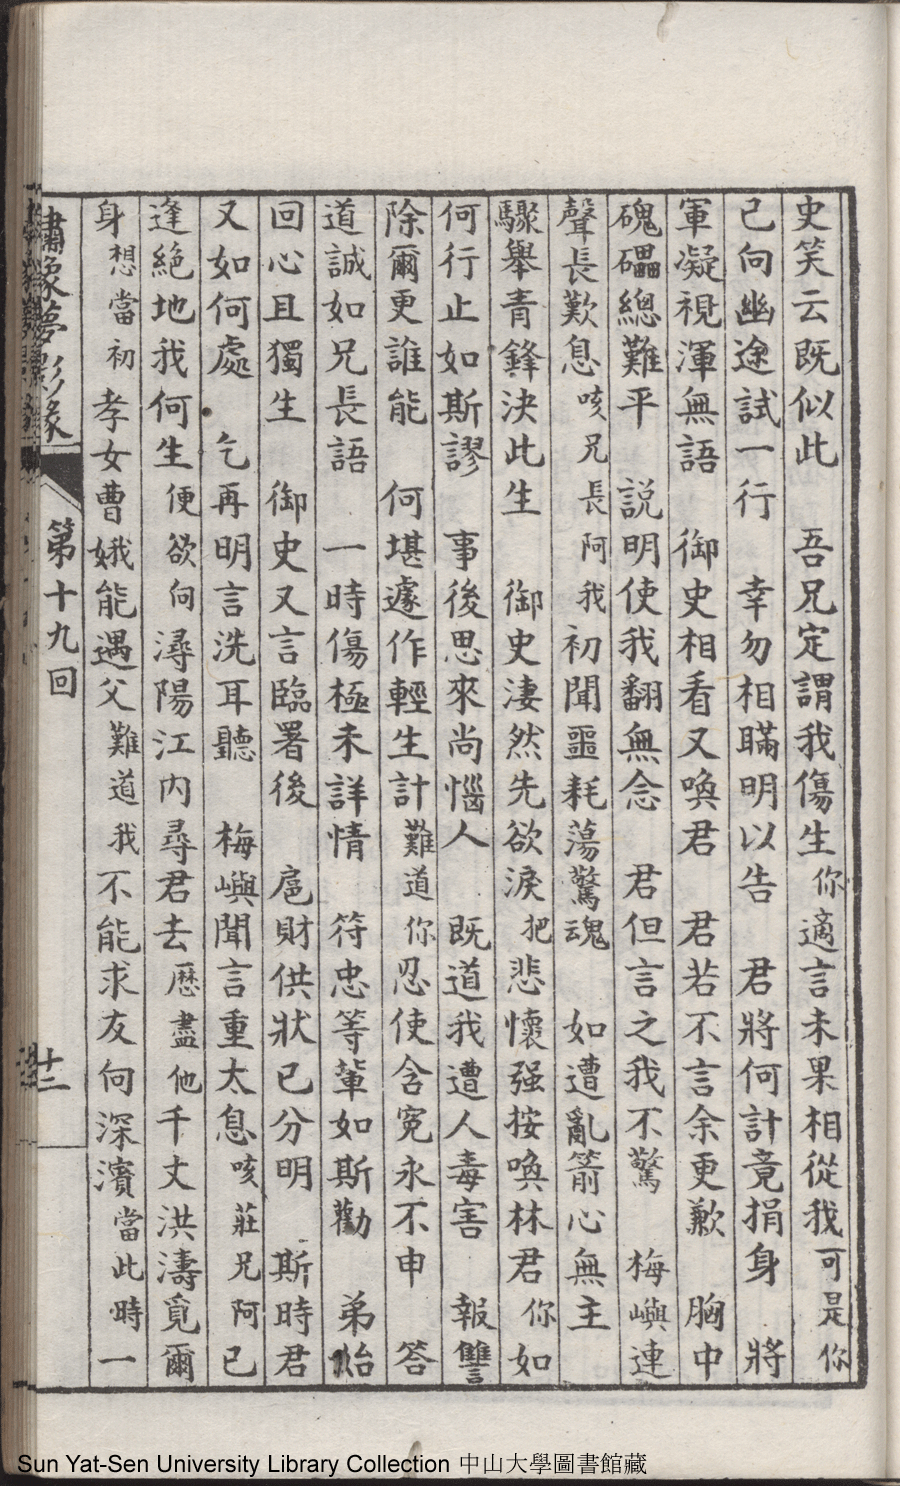 史笑云既似此　吾兄定謂我傷生你適言未果相從我可是你
己向幽途試一行　幸勿相瞞明以告　君將何計竟捐身　將
軍凝視渾無語　御史相看又喚君　君若不言余更歉　胸中
磈礧總難平　説明使我翻無念　君但言之我不驚　梅嶼連
聲長歎息咳兄長阿我初聞噩耗蕩驚魂　如遭亂箭心無主
驟舉青鋒決此生　御史淒然先欲淚把悲懷强按喚林君你如
何行止如斯謬　事後思來尚惱人　既道我遭人毒害　報讐
除爾更誰能　何堪遽作輕生計難道你忍使含寃永不申　答
道誠如兄長語　一時傷極未詳情　符忠等輩如斯勸　弟始
回心且獨生　御史又言臨署後　扈財供狀已分明　斯時君
又如何處　乞再明言洗耳聽　梅嶼聞言重太息咳莊兄阿已
逢絕地我何生便欲向潯陽江內尋君去歷盡他千丈洪濤覓爾
身想當初孝女曹娥能遇父難道我不能求友向深濱當此時一
繡像夢影緣　第十九回　十二
Sun Yat-Sen University Library Collection 中山大學圖書館藏